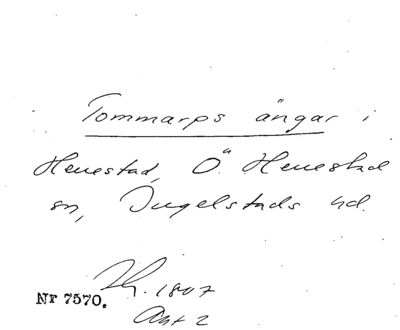 Tommarps ängar i
Herrestad, Ö. Herrestad
sn, Ingelstads hd.
Nr 7570.
1807
Akt 2